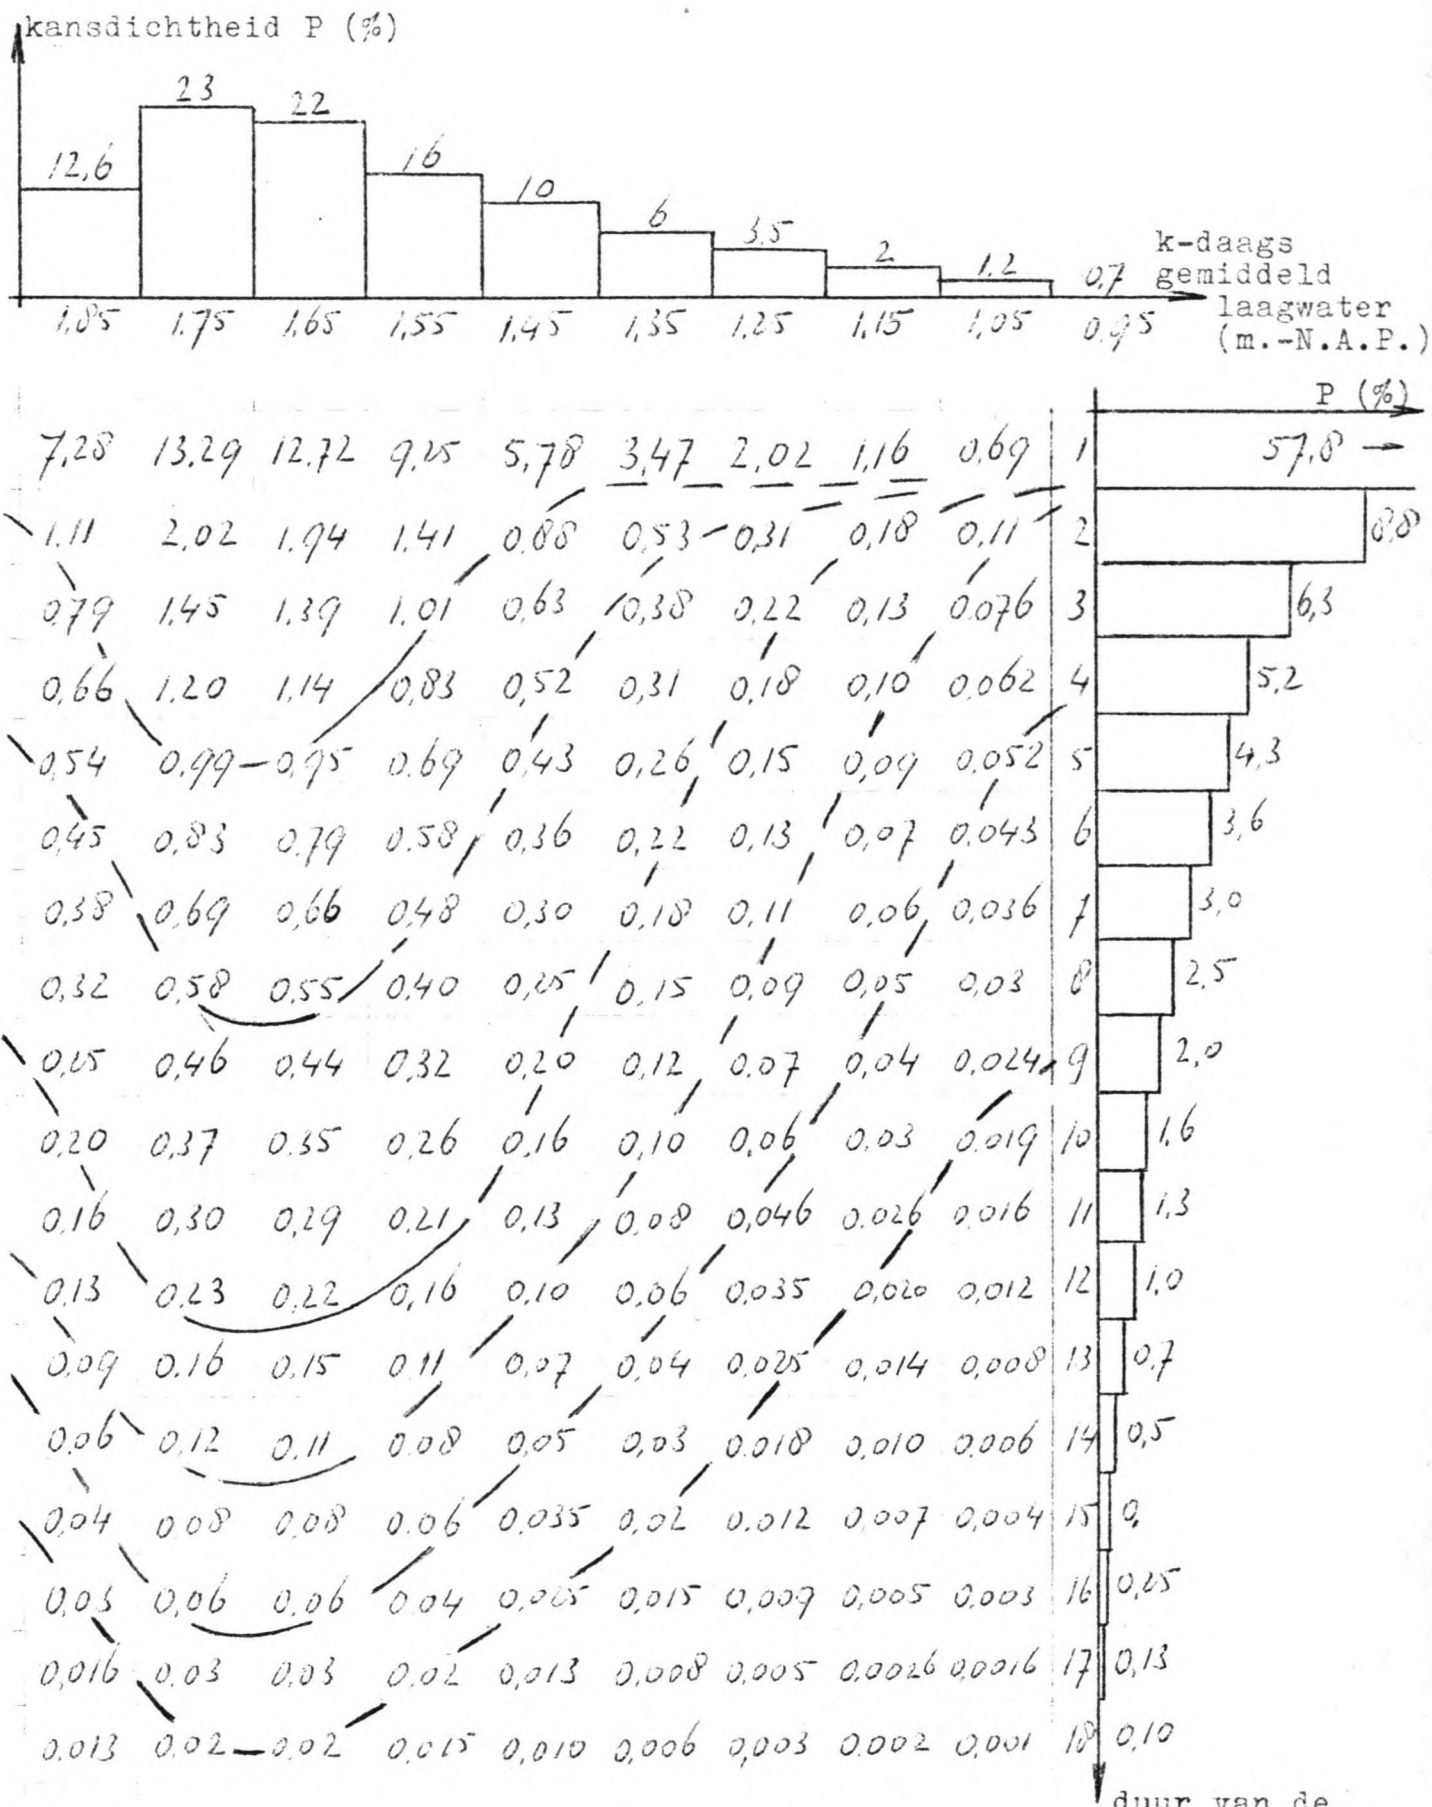 kansdichtheid P (%)
12,6 23 22 16 10 6 3.5 2 1.2 0,7
k-daags
gemiddeld
laagwater
(m.-N.A.P.)
1.85 1.75 1.65 1.55 1.45 1,35 1.25 1.15 1,05 0.95
P (%)
7,28 13.29 12.72 9,25 5,78 3,47 2,02 1,16 0,69 1 57,8
1.11 2.02 1.94 1.41 0,88 0,53 0,31 0,18 0,11 2 8,8
0,79 1.45 1.39 1.01 0,63 0,38 0,22 0,13 0.076 3 6,3
0,66 1.20 1.14 0,83 0,52 0,31 0,18 0,10 0.062 4 5,2
0,54 0.99 0.95 0.69 0,43 0,26 0,15 0,09 0.052 5 4,3
0,45 0.83 0.79 0.58 0,36 0,22 0,13 0,07 0.043 6 3,6
0,38 0,69 0,66 0,48 0,30 0,18 0,11 0,06 0,036 7 3,0
0,32 0,58 0,55 0,40 0,25 0,15 0,09 0,05 0,03 8 2,5
0,25 0,46 0,44 0,32 0,20 0,12 0,07 0,04 0,024 9 2,0
0,20 0,37 0.35 0,26 0,16 0,10 0,06 0,03 0.019 10 1,6
0,16 0,30 0,29 0,21 0,13 0,08 0,046 0.026 0.016 11 1,3
0,13 0,23 0,22 0,16 0,10 0,06 0,035 0,020 0,012 12 1,0
0,09 0.16 0,15 0,11 0,07 0,04 0,025 0,014 0,008 13 0,7
0,06 0,12 0,11 0.08 0,05 0,03 0.018 0,010 0.006 14 0,5
0,04 0,08 0.08 0.06 0.035 0,02 0.012 0,007 0,004 15 0,
0,03 0,06 0.06 0.04 0,025 0,015 0,009 0,005 0.003 16 0,25
0,016 0,03 0,03 0.02 0,013 0,008 0,005 0.0026 0,0016 17 0,13
0.013 0.02 0.02 0.015 0,010 0,006 0,003 0.002 0,001 18 0,10
duur van de